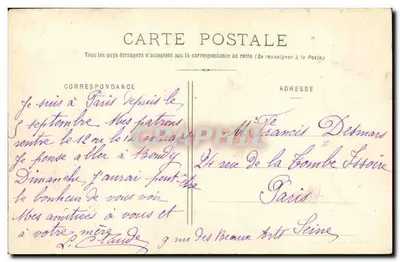 CARTE POSTALE
Tous les pays étrangers n'acceptent pas la correspondance au recto (Se renseigner à la Poste)
CORRESPONDANCE
Je suis à Paris depuis le
5 septembre Mes patrons
rentre le 12 ou le
Je pense aller à Bondy
Dimanche, J'aurai peut être
le bonheur de vous voir
Mes amitiées à vous et
à votre mère
L. Claude 9 rue des Beaux Arts
ADRESSE
M. Francis Desmars
24 rue de la Tombe Issoire
Paris
Seine